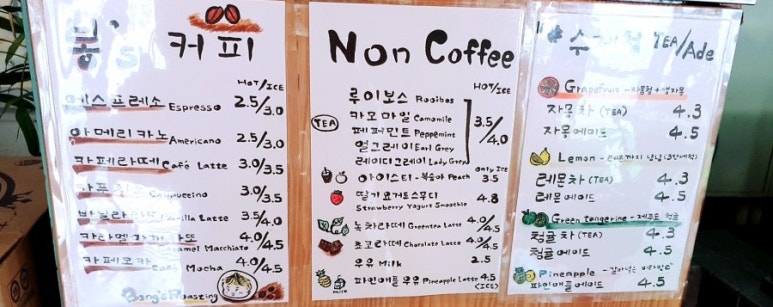 봉's 커피
HOT/ICE
에스프레소 Espresso 2.5/3.0
아메리카노 Americano 2.5/3.0
카페라떼 Café Latte 3.0/3.5
Cappuccino 3.0/3.5
Vanilla Latte 3.5/4.0
Caramel Macchiato 4.0/4.5
카페모카 Café Mocha 4.0/4.5
Bong's Roasting
Non Coffee
HOT/ICE
TEA
루이보스 Rooibos
카모마일 Camomile
페퍼민트 Peppemint
얼그레이 Earl Grey
레이디그레이 Lady Grey
3.5/4.0
only ice
아이스티 - 복숭아 Peach 3.5
딸기요거트스무디 4.8
Strawberry Yogurt Smoothie
녹차라떼 Greentea Latte 4.0/4.5
쵸코라떼 Chocolate Latte 4.0/4.5
우유 Milk 2.5
파인애플우유 Pineapple Latte 4.5
(ICE)
TEA/Ade
Grapefruit - 자몽청 + 생자몽
자몽차 (TEA) 4.3
자몽에이드 4.5
Lemon
레몬차 (TEA) 4.3
레몬에이드 4.5
Green tangerine - 제주도 청귤
청귤차 (TEA) 4.3
청귤에이드 4.5
Pineapple
파인애플에이드 4.5